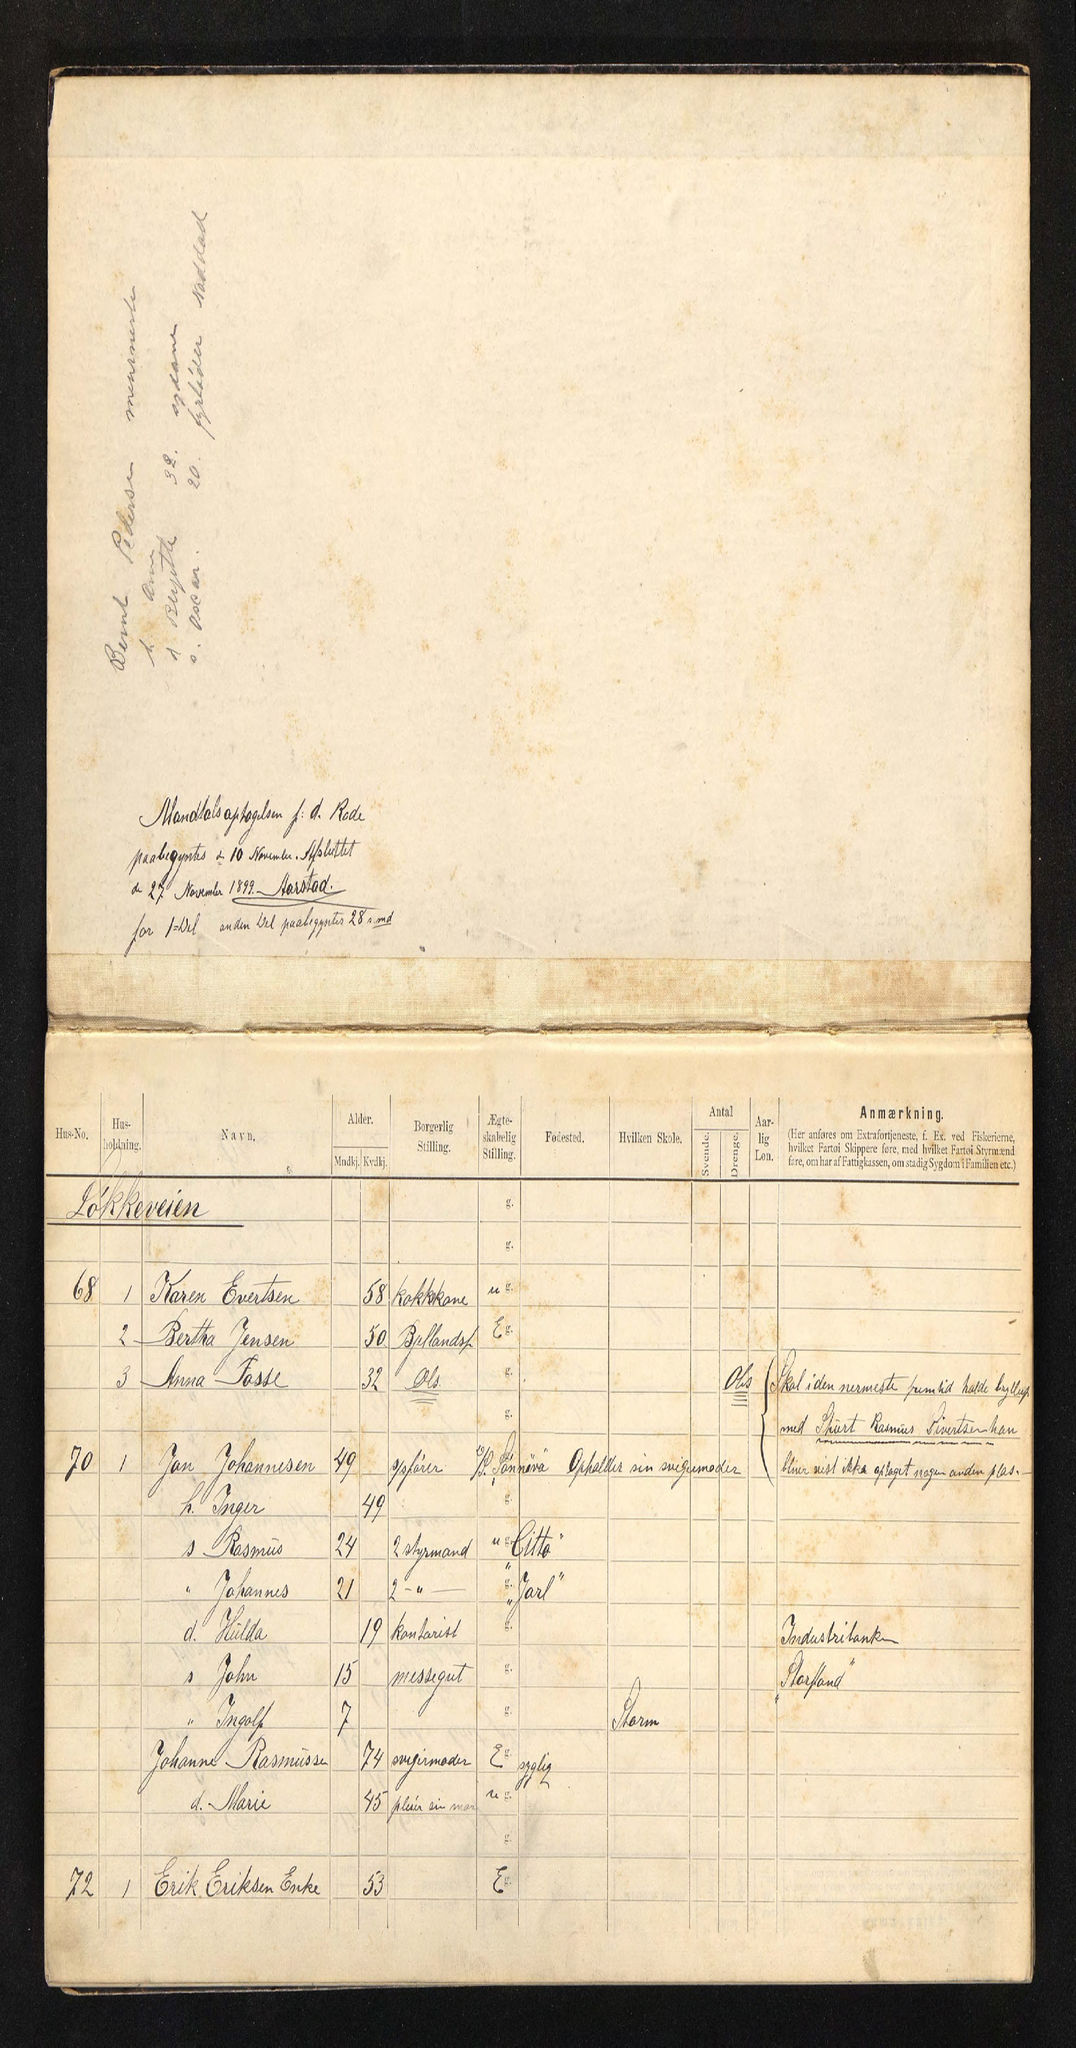 Bernt Pedersen
h. Ane
d Birgitta 32. sydame
s. Oscar. 20. fyrbøder
Mandtalsoptagelsen f: d. Rode
paabegyntes d. 10 November. Afsluttet
d 27 November 1899. Aarstad.
for 1=Del anden Del paabegyntes 28 s. md
Hus-No. Hus-holdning. Navn. Alder. Mndkj. Kvdkj. Borgerlig Stilling. Ægte-skabelig Stilling. Fødested. Hvilken Skole. Antal Svende. Drenge. Aar-lig Løn. Anmærkning.
(Her anføres om Extrafortjeneste, f. Ex. ved Fiskerierne,
hvilket Fartøi Skippere føre, med hvilket Fartøi Styrmænd
fare, om har af Fattigkassen, om stadig Sygdom i Familien etc.)
Løkkeveien g.
g.
68 1 Karen Evertsen 58 kokkone u g.
2 Bertha Jensen 50 E g.
3 Anna Fosse 32 Obs g. Obs Skal i den nermeste fremtid holde bryllup
g. med Stuert Rasmus Sivertsen han
70 1 Jan Johannesen 49 s/sfører D/S. "Sønnøva" Opholder sin svigermoder bliver vist ikke optaget nogen anden plas
h. Inger 49 g.
s Rasmus 24 2 styrmand u g. "Citto"
" Johannes 21 2 - " - g. "Jarl"
d. Hulda 19 kontorist g. Industribanken
s John 15 messegut g. "Storfond"
" Ingolf 7 g. Storm
Johanne Rasmussen 74 svigermoder E g. syglig
d. Marie 45 pleier sin mor u g.
g.
72 1 Erik Eriksen Enke 53 E g.